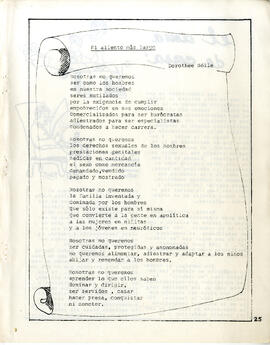 El aliento más largo
Dorothee Sölle
Nosotras no queremos
ser como los hombres
en nuestra sociedad
seres mutilados
por la exigencia de cumplir
empobrecidos en sus emociones
Comercializados para ser burócratas
adiestrados para ser especialistas
Condenados a hacer carrera.
Nosotras no queremos
los derechos sexuales de los hombres
prestaciones genitales
medidas en cantidad
el sexo como mercancía
demandado, vendido
pagado y mostrado
Nosotras no queremos
la familia inventada y
dominada por los hombres
Que sólo existe para sí misma
que convierte a la gente en apolítica
a las mujeres en
y a los jóvenes en neuróticos
Nosotras no queremos
ser cuidadas, protegidas y
no queremos alimentar, adiestrar y adaptar a los niños
y remendar a los hombres.
Nosotras no queremos
aprender lo que ellos saben
dominar y dirigir,
ser servidos, cazar
hacer presa, conquistar
ni someter.
25